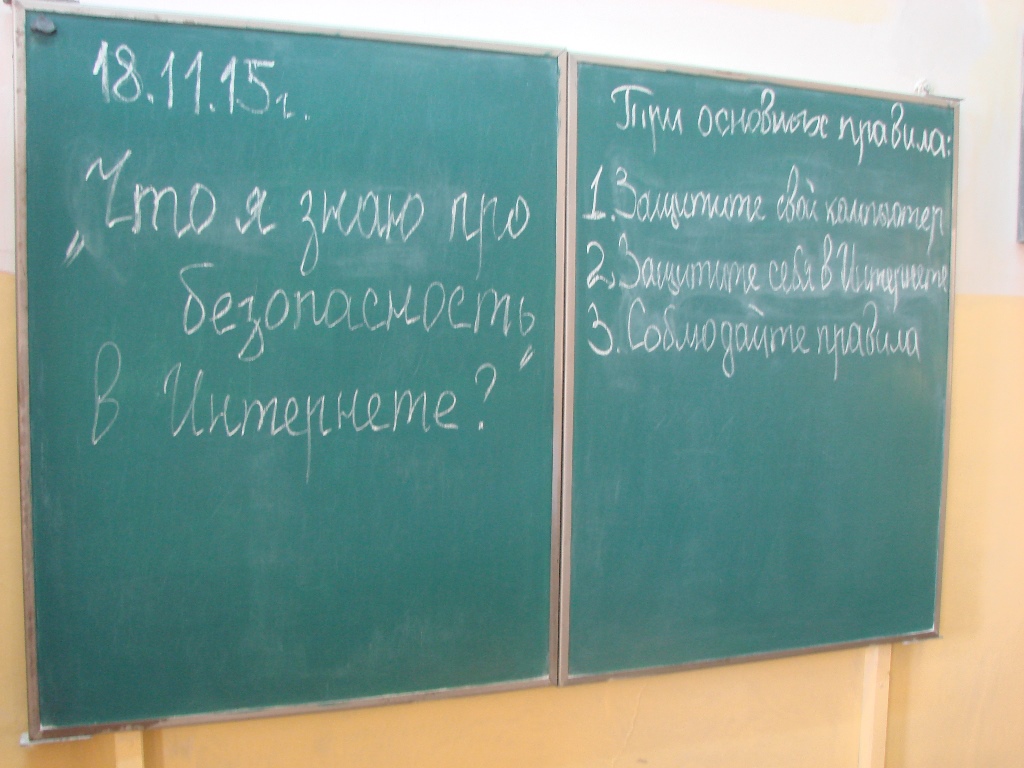 18.11.15г.
„Что я знаю про
безопасность
в Интернете?"
Три основных правила:
1. Защитите свой компьютер
2. Защитите себя в Интернете
3. Соблюдайте правила